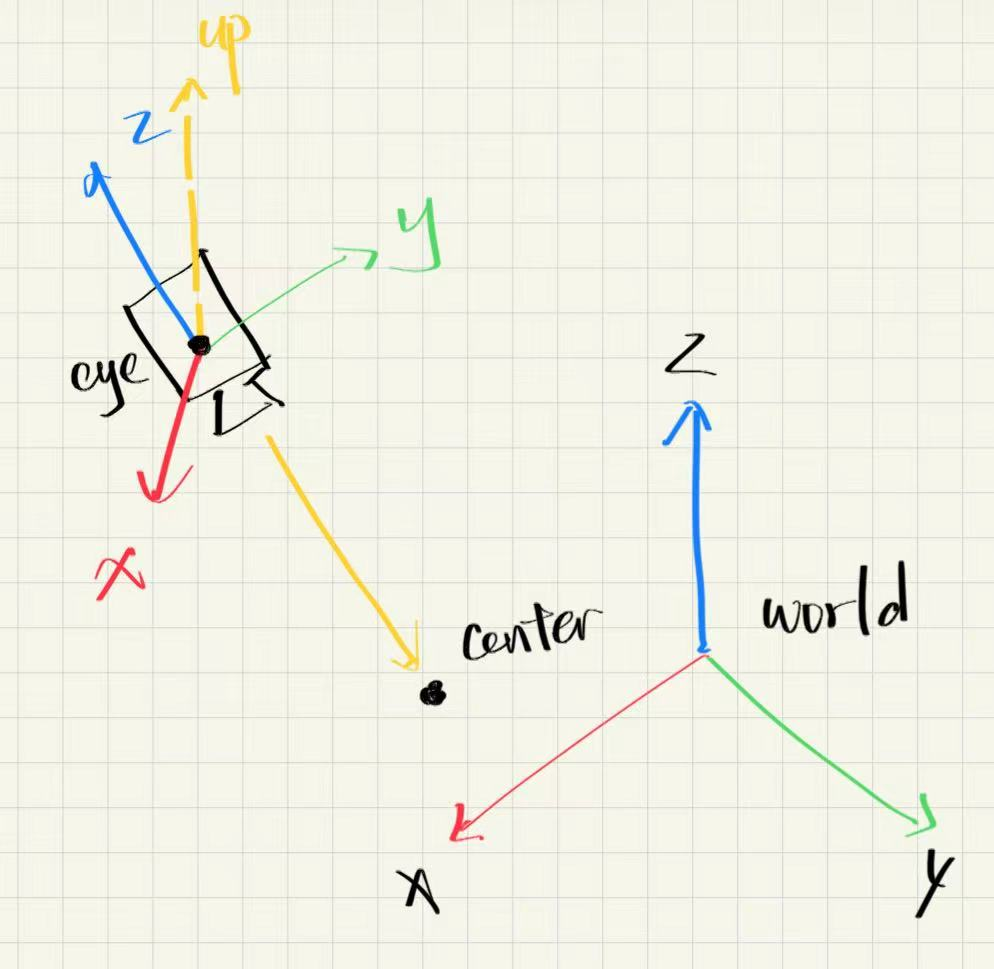 up
z
y
eye
x
center
world
z
x
y